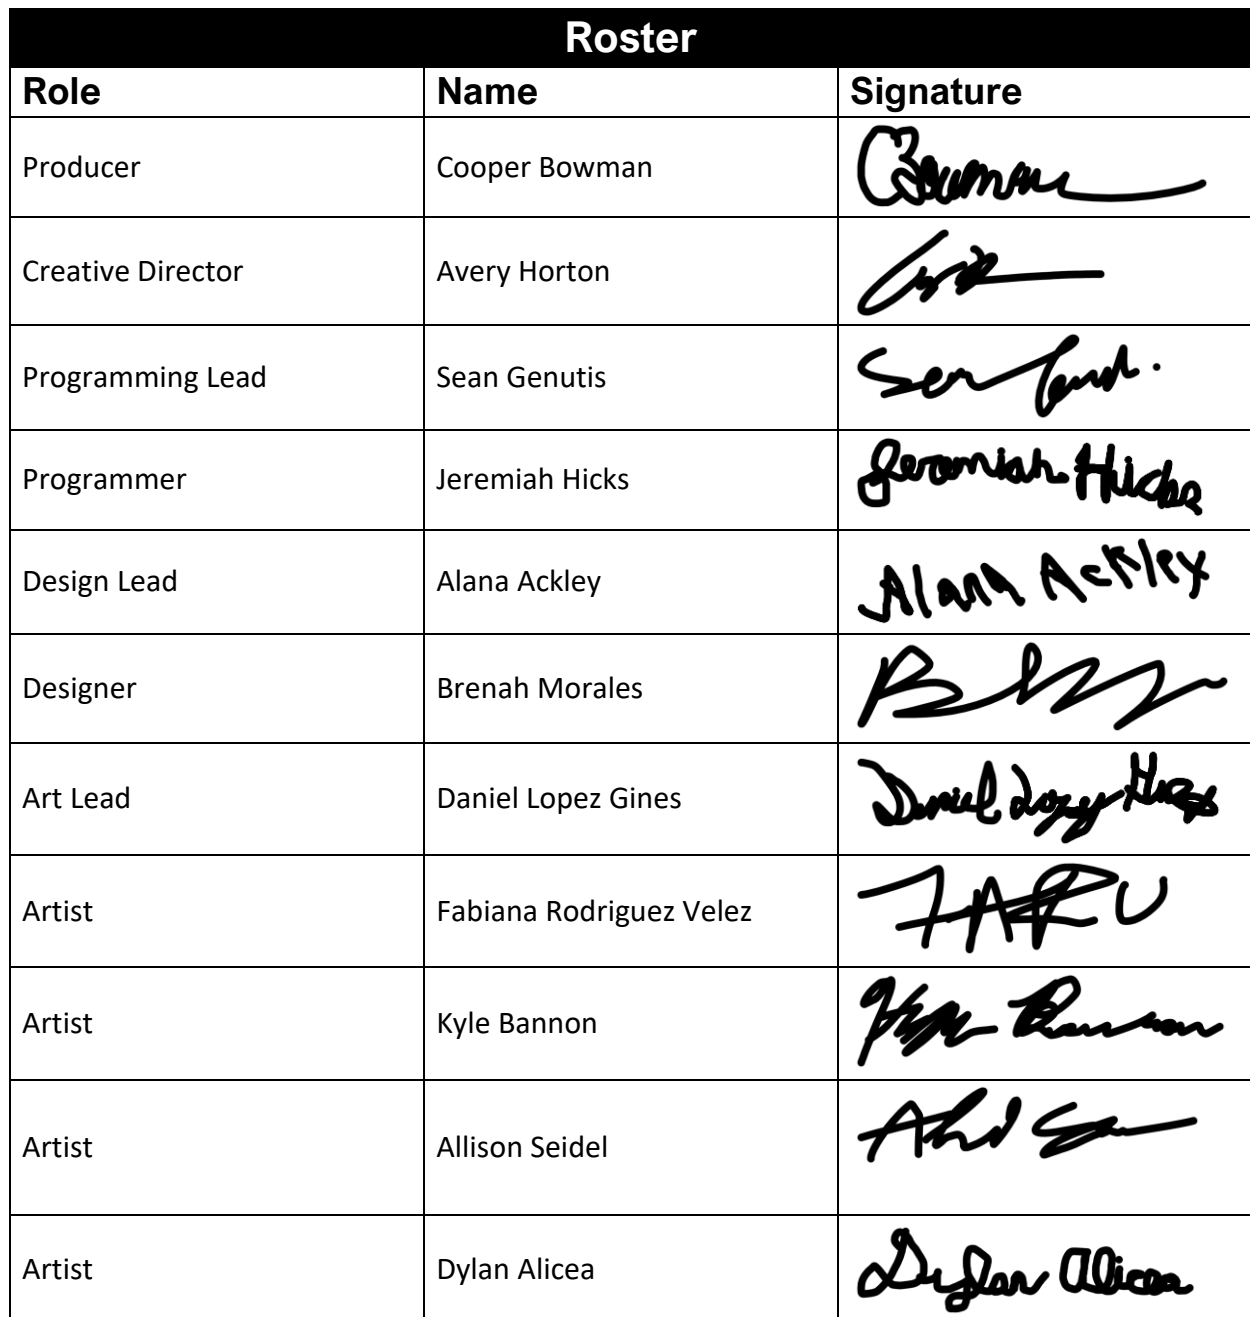 Roster
Role Name Signature
Producer Cooper Bowman CBowman
Creative Director Avery Horton
Programming Lead Sean Genutis Sean
Programmer Jeremiah Hicks Jeremiah Hicks
Design Lead Alana Ackley Alana Ackley
Designer Brenah Morales
Art Lead Daniel Lopez Gines Daniel Lopez Gines
Artist Fabiana Rodriguez Velez FARV
Artist Kyle Bannon Kyle Bannon
Artist Allison Seidel
Artist Dylan Alicea Dylan Alicea